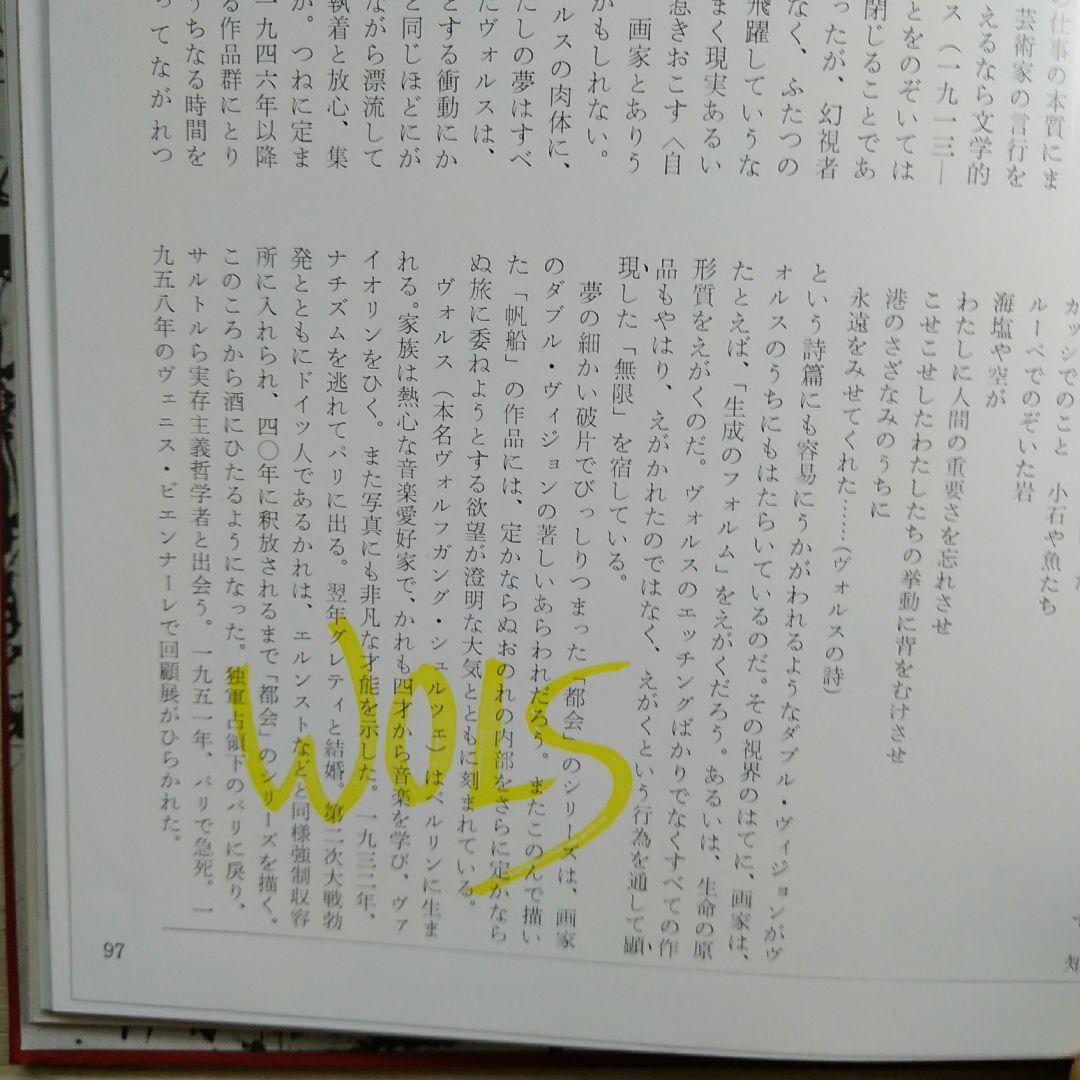 の仕事の本質にま
芸術家の言行を
えるなら文学的
ス（一九一三—
とをのぞいては
閉じることであ
ったが、幻視者
なく、ふたつの
飛躍しているな
まく現実あるい
惹きおこす〈自
かもしれない。
画家とありう
ルスの肉体に、
たしの夢はすべ
たヴォルスは、
とする衝動にか
と同じほどにが
ながら漂流して
執着と放心、集
か。つねに定ま
一九四六年以降
る作品群にとり
うちなる時間を
ってながれつ
カッシでのこと　小石や魚たち
ルーペでのぞいた岩
海塩や空が
わたしに人間の重要さを忘れさせ
こせこせしたわたしたちの挙動に背をむけさせ
港のさざなみのうちに
永遠をみせてくれた……（ヴォルスの詩）
という詩篇にも容易にうかがわれるようなダブル・ヴィジョンがヴ
ォルスのうちにもはたらいているのだ。その視界のはてに、画家は、
たとえば、「生成のフォルム」をえがくだろう。あるいは、生命の原
形質をえがくのだ。ヴォルスのエッチングばかりでなくすべての作
品もやはり、えがかれたのではなく、えがくという行為を通して顕
現した「無限」を宿している。
夢の細かい破片でびっしりつまった「都会」のシリーズは、画家
のダブル・ヴィジョンの著しいあらわれだろう。またこのんで描い
た「帆船」の作品には、定かならぬおのれの内部をさらに定かなら
ぬ旅に委ねようとする欲望が澄明な大気とともに刻まれている。
ヴォルス（本名ヴォルフガング・シュルツェ）はベルリンに生ま
れる。家族は熱心な音楽愛好家で、かれも四才から音楽を学び、ヴァ
イオリンをひく。また写真にも非凡な才能を示した。一九三二年、
ナチズムを逃れてパリに出る。翌年グレティと結婚。第二次大戦勃
発とともにドイツ人であるかれは、エルンストなどと同様強制収容
所に入れられ、四〇年に釈放されるまで「都会」のシリーズを描く。
このころから酒にひたるようになった。独軍占領下のパリに戻り、
サルトルら実存主義哲学者と出会う。一九五一年、パリで急死。一
九五八年のヴェニス・ビエンナーレで回顧展がひらかれた。
WOLS
97